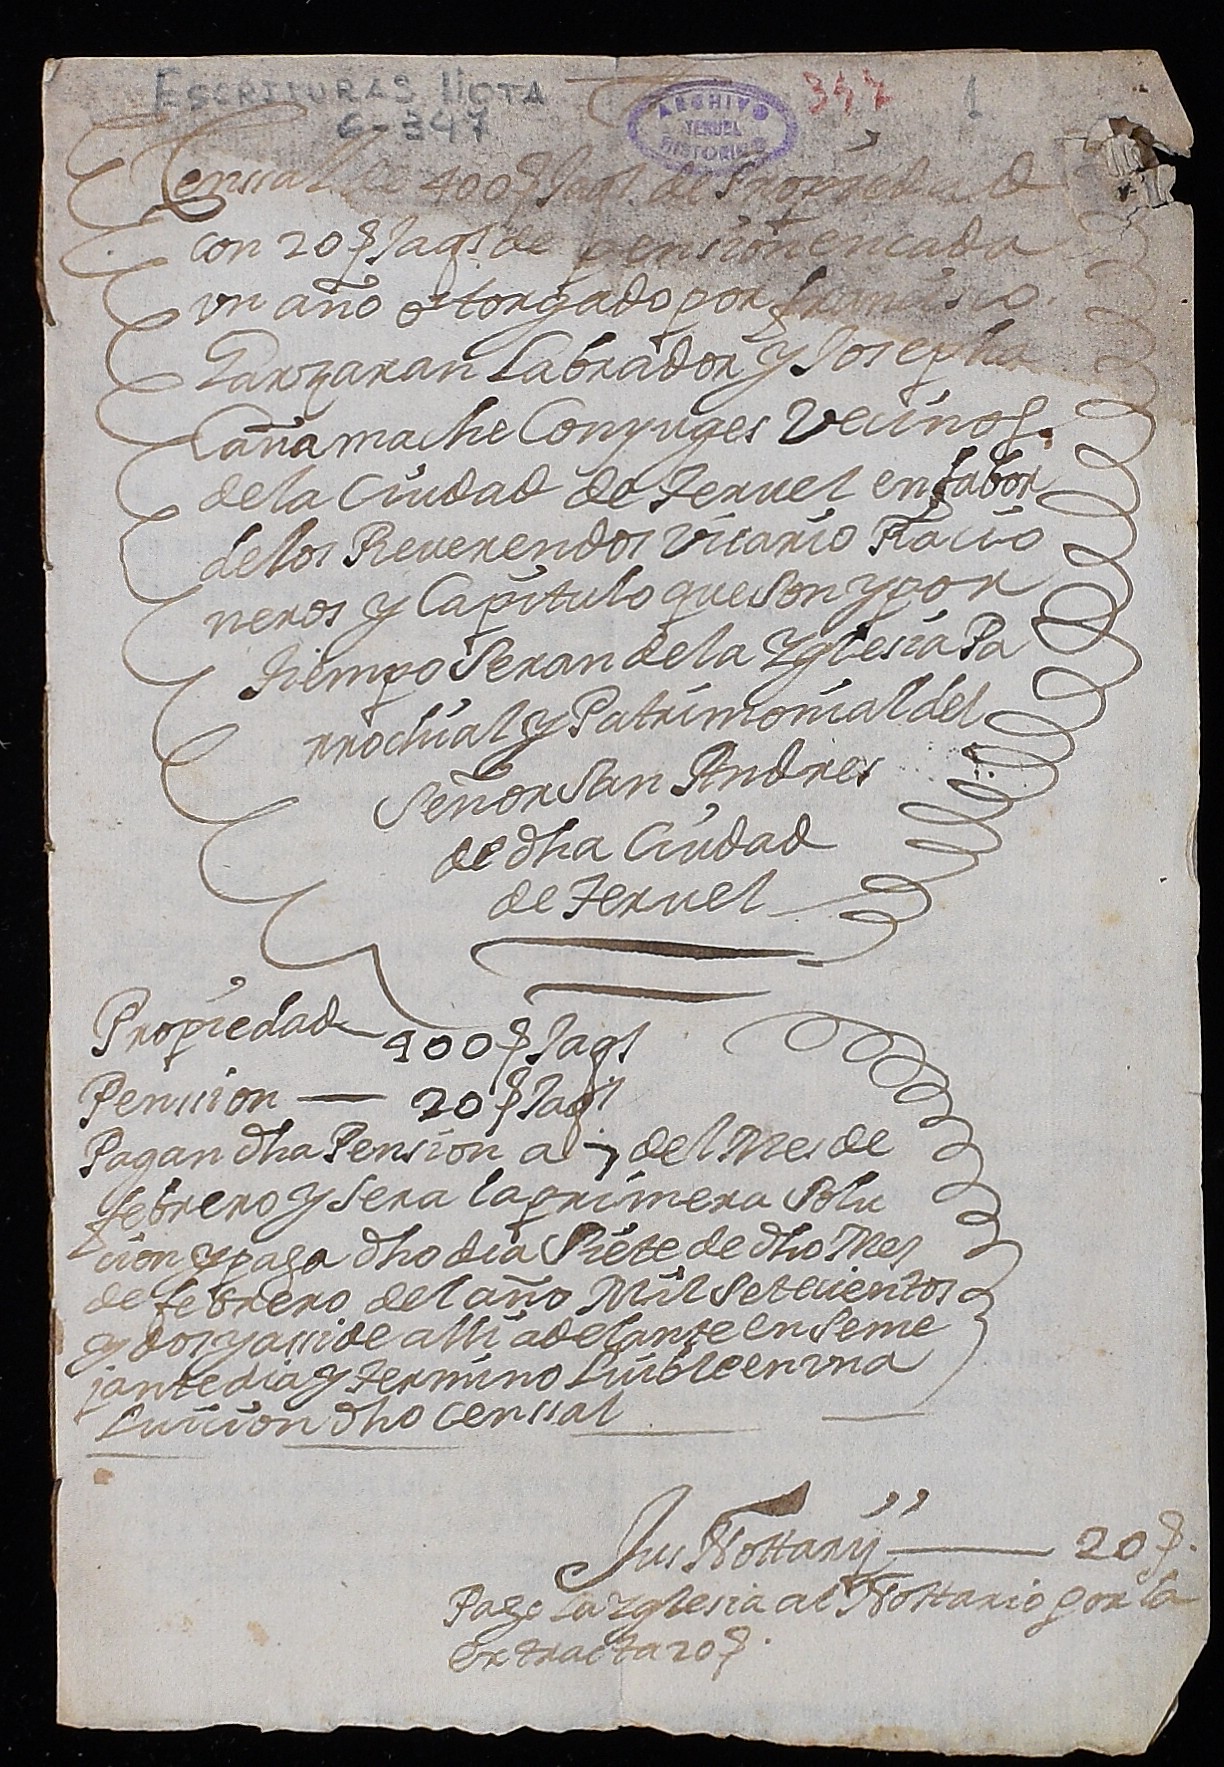 ESCRITURAS NOTA
6-347
ARCHIVO
TERUEL
HISTORICO
347
1
Censsal de 400 $ Jaqs. de Propiedad
con 20 $ Jaqs de pension en cada
vn año otorgado por francisco
Garzaran Labrador y Josepha
Cañamache Conyuges Vecinos
de la Ciudad de Teruel en fabor
de los Reuerendos Vicario Racio
neros y Capitulo que son y por
tiempo Seran de la Yglesia Pa
rrochial y Patrimonial del
Señor San Andres
de dha Ciudad
de Teruel
Propiedad 400 $ Jaqs
Penssion — 20 $ Jaqs
Pagan dha Pension a 7 del Mes de
febrero y sera la primera Solu
cion y paga dho dia Siete de dho Mes
de febrero del año Mil Setecientos
y dos y assi de alli adelante en Seme
jante dia y termino Luible en vna
Luicion dho censsal
Jus Nottarij — 20 $.
Pago la Yglesia al Nottario por la
extracta 20 $.